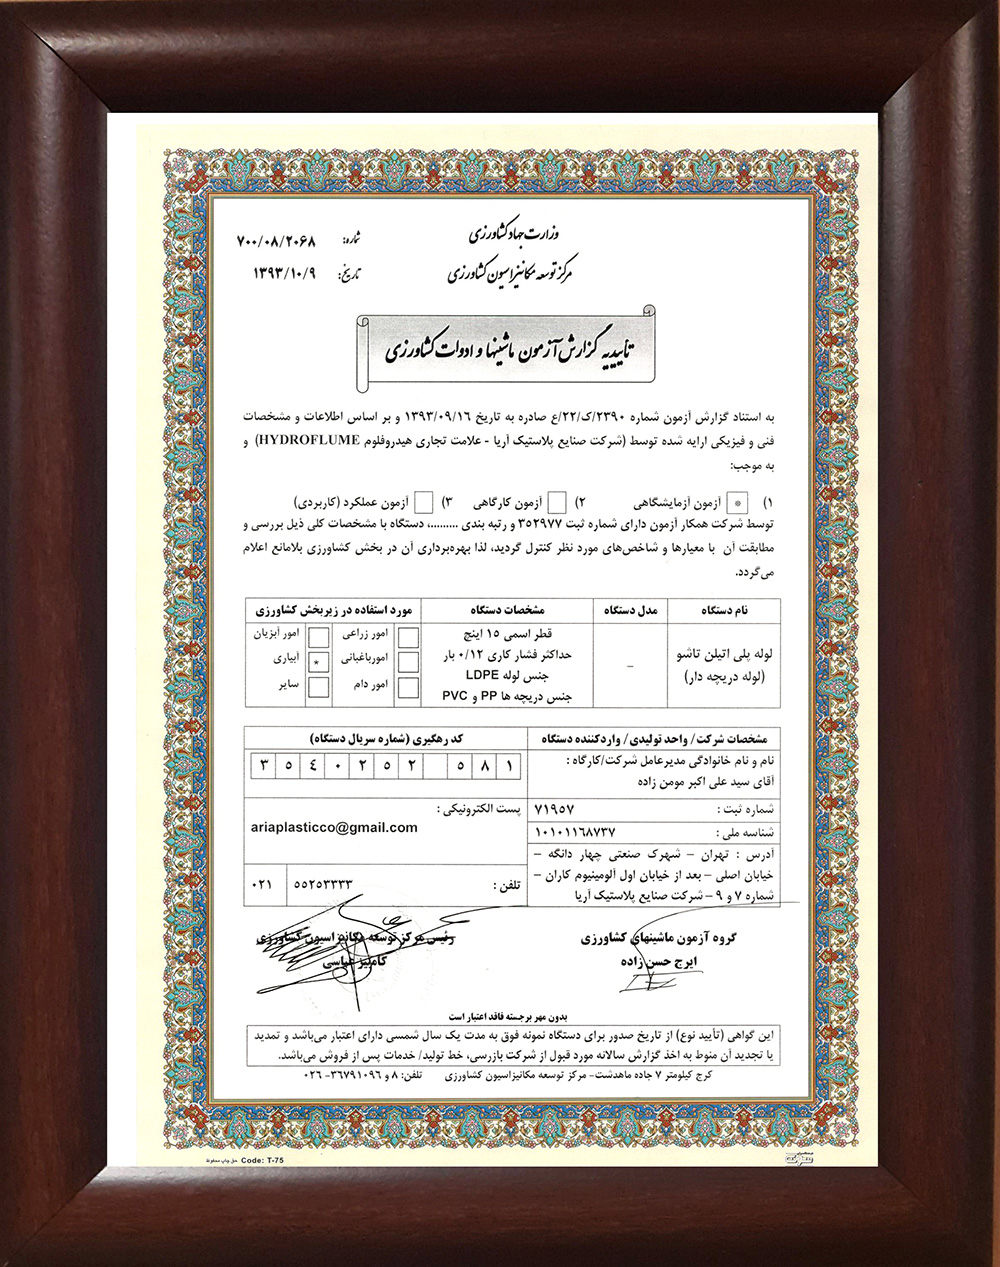 وزارت جهاد کشاورزی
مرکز توسعه مکانیزاسیون کشاورزی
شماره: ۷۰۰/۰۸/۲۰۶۸
تاریخ: ۱۳۹۳/۱۰/۹
تاییدیه گزارش آزمون ماشینها و ادوات کشاورزی
به استناد گزارش آزمون شماره ۲۳۹۰/ک/۲۲/ع صادره به تاریخ ۱۳۹۳/۰۹/۱۶ و بر اساس اطلاعات و مشخصات
فنی و فیزیکی ارایه شده توسط (شرکت صنایع پلاستیک آریا - علامت تجاری هیدروفلوم HYDROFLUME) و
به موجب:
۱) * آزمون آزمایشگاهی ۲) آزمون کارگاهی ۳) آزمون عملکرد (کاربردی)
توسط شرکت همکار آزمون دارای شماره ثبت ۳۵۲۹۷۷ و رتبه بندی .........، دستگاه با مشخصات کلی ذیل بررسی و
مطابقت آن با معیارها و شاخص‌های مورد نظر کنترل گردید، لذا بهره‌برداری آن در بخش کشاورزی بلامانع اعلام
می‌گردد.
نام دستگاه مدل دستگاه مشخصات دستگاه مورد استفاده در زیربخش کشاورزی
لوله پلی اتیلن تاشو
(لوله دریچه دار)
–
قطر اسمی ۱۵ اینچ
حداکثر فشار کاری ۰/۱۲ بار
جنس لوله LDPE
جنس دریچه ها PP و PVC
امور زراعی امور آبزیان
امورباغبانی آبیاری *
امور دام سایر
مشخصات شرکت/ واحد تولیدی/ واردکننده دستگاه
نام و نام خانوادگی مدیرعامل شرکت/کارگاه :
آقای سید علی اکبر مومن زاده
شماره ثبت : ۷۱۹۵۷
شناسه ملی : ۱۰۱۰۱۱۶۸۷۳۷
آدرس : تهران – شهرک صنعتی چهار دانگه –
خیابان اصلی – بعد از خیابان اول آلومینیوم کاران –
شماره ۷ و ۹ – شرکت صنایع پلاستیک آریا
کد رهگیری (شماره سریال دستگاه)
۳ ۵ ۴ ۰ ۲ ۵ ۲ ۵ ۸ ۱
پست الکترونیکی :
ariaplasticco@gmail.com
تلفن : ۵۵۲۵۳۳۳۳ ۰۲۱
گروه آزمون ماشینهای کشاورزی
ایرج حسن زاده
رئیس مرکز توسعه مکانیزاسیون کشاورزی
کامبیز عباسی
بدون مهر برجسته فاقد اعتبار است
این گواهی (تأیید نوع) از تاریخ صدور برای دستگاه نمونه فوق به مدت یک سال شمسی دارای اعتبار می‌باشد و تمدید
یا تجدید آن منوط به اخذ گزارش سالانه مورد قبول از شرکت بازرسی، خط تولید/ خدمات پس از فروش می‌باشد.
کرج کیلومتر ۷ جاده ماهدشت- مرکز توسعه مکانیزاسیون کشاورزی تلفن: ۸ و ۳۶۷۹۱۰۹۶- ۰۲۶
Code: T-75 حق چاپ محفوظ